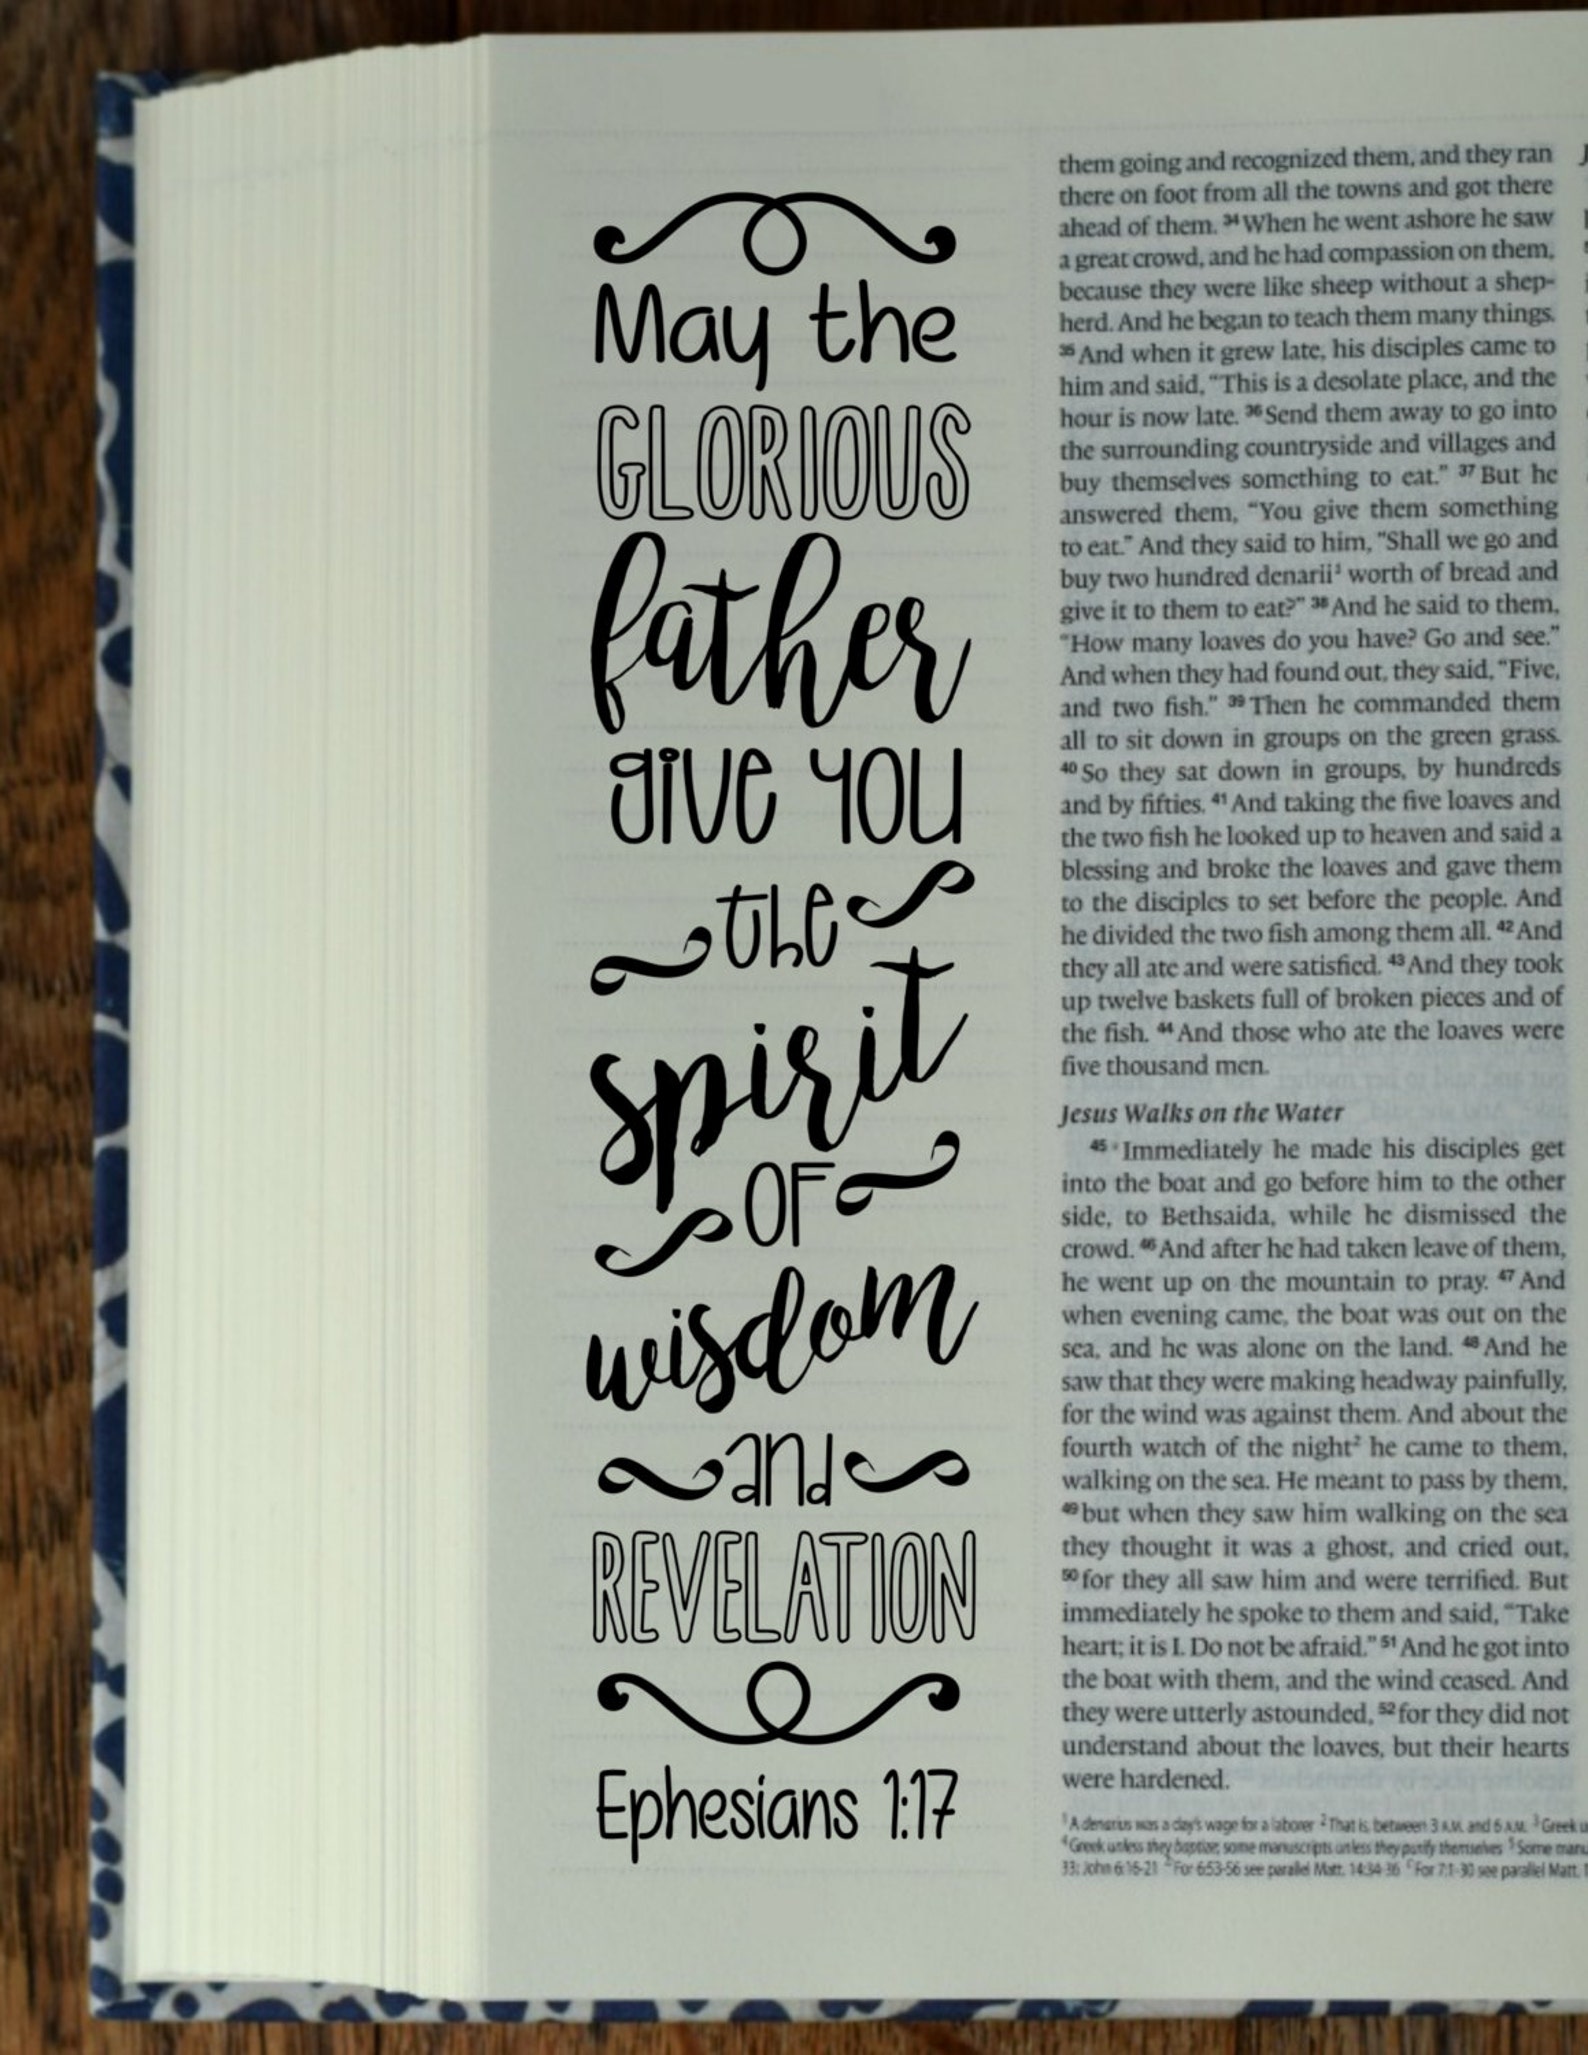 May the
GLORIOUS
father
give you
the
spirit
OF
wisdom
and
REVELATION
Ephesians 1:17
them going and recognized them, and they ran
there on foot from all the towns and got there
ahead of them. 34 When he went ashore he saw
a great crowd, and he had compassion on them,
because they were like sheep without a shep-
herd. And he began to teach them many things.
35 And when it grew late, his disciples came to
him and said, “This is a desolate place, and the
hour is now late. 36 Send them away to go into
the surrounding countryside and villages and
buy themselves something to eat.” 37 But he
answered them, “You give them something
to eat.” And they said to him, “Shall we go and
buy two hundred denarii1 worth of bread and
give it to them to eat?” 38 And he said to them,
“How many loaves do you have? Go and see.”
And when they had found out, they said, “Five,
and two fish.” 39 Then he commanded them
all to sit down in groups on the green grass.
40 So they sat down in groups, by hundreds
and by fifties. 41 And taking the five loaves and
the two fish he looked up to heaven and said a
blessing and broke the loaves and gave them
to the disciples to set before the people. And
he divided the two fish among them all. 42 And
they all ate and were satisfied. 43 And they took
up twelve baskets full of broken pieces and of
the fish. 44 And those who ate the loaves were
five thousand men.
Jesus Walks on the Water
45 Immediately he made his disciples get
into the boat and go before him to the other
side, to Bethsaida, while he dismissed the
crowd. 46 And after he had taken leave of them,
he went up on the mountain to pray. 47 And
when evening came, the boat was out on the
sea, and he was alone on the land. 48 And he
saw that they were making headway painfully,
for the wind was against them. And about the
fourth watch of the night2 he came to them,
walking on the sea. He meant to pass by them,
49 but when they saw him walking on the sea
they thought it was a ghost, and cried out,
50 for they all saw him and were terrified. But
immediately he spoke to them and said, “Take
heart; it is I. Do not be afraid.” 51 And he got into
the boat with them, and the wind ceased. And
they were utterly astounded, 52 for they did not
understand about the loaves, but their hearts
were hardened.
1 A denarius was a day's wage for a laborer 2 That is, between 3 A.M. and 6 A.M. 3 Greek
4 Greek unless they baptize; some manuscripts unless they purify themselves 5 Some
33; John 6:16-21 For 6:53-56 see parallel Matt. 14:34-36 For 7:1-30 see parallel Matt.